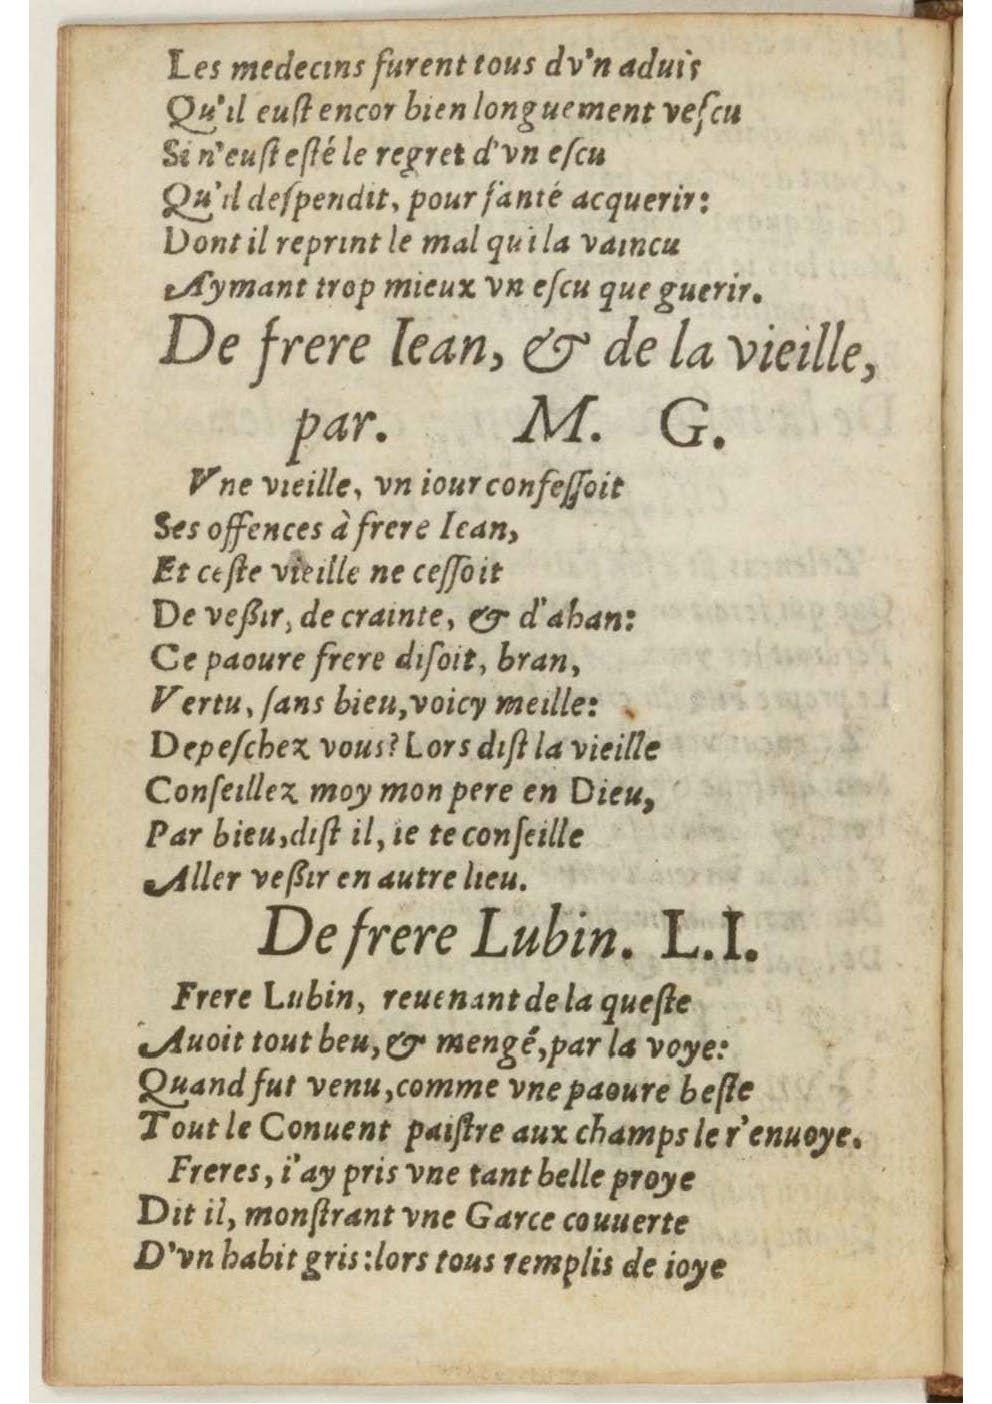 Les medecins furent tous dv'n aduis
Qu'il euſt encor bien longuement veſcu
Si n'euſt eſté le regret d'vn eſcu
Qu'il deſpendit, pour ſanté acquerir:
Dont il reprint le mal qui la vaincu
Aymant trop mieux vn eſcu que guerir.
De frere Iean, & de la vieille,
par. M. G.
Vne vieille, vn iour confeſſoit
Ses offences à frere Iean,
Et ceſte vieille ne ceſſoit
De veßir, de crainte, & d'ahan:
Ce paoure frere diſoit, bran,
Vertu, ſans bieu, voicy meille:
Depeſchez vous? Lors diſt la vieille
Conſeillez moy mon pere en Dieu,
Par bieu, diſt il, ie te conſeille
Aller veßir en autre lieu.
De frere Lubin. L.I.
Frere Lubin, reuenant de la queſte
Auoit tout beu, & mengé, par la voye:
Quand fut venu, comme vne paoure beſte
Tout le Conuent paiſtre aux champs le r'enuoye.
Freres, i'ay pris vne tant belle proye
Dit il, monſtrant vne Garce couuerte
D'vn habit gris: lors tous remplis de ioye